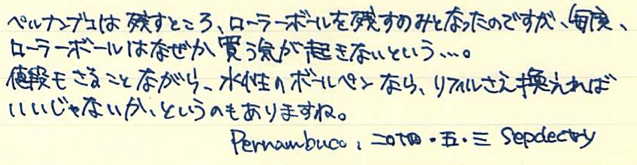 ペルナンブコは残すところ、ローラーボールを残すのみとなったのですが、毎度、
ローラーボールはなぜか買う気が起きないという…。
値段もさることながら、水性のボールペンなら、リフィルさえ換えれば
いいじゃないか、というのもありますね。
Pernambuco, 二〇十四・五・三 Sepdectry